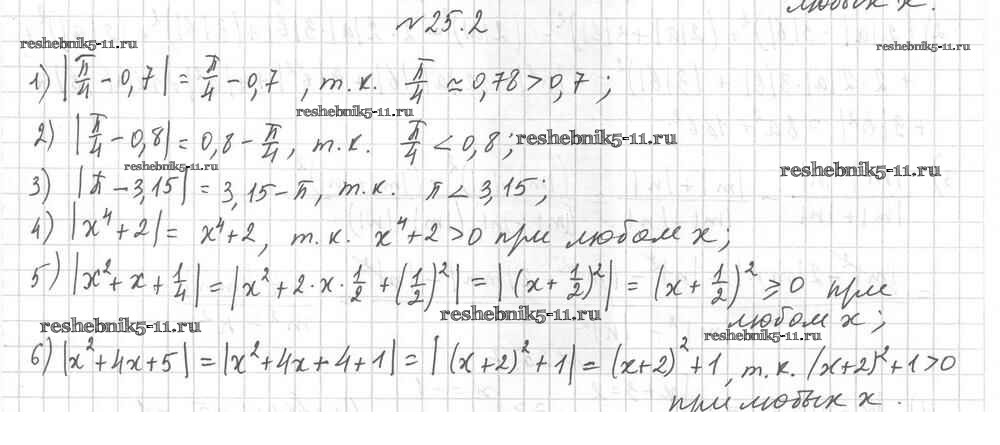 любых x.
№25.2
reshebnik5-11.ru reshebnik5-11.ru
1) |π/4 − 0,7| = π/4 − 0,7, т.к. π/4 ≈ 0,78 > 0,7;
reshebnik5-11.ru
2) |π/4 − 0,8| = 0,8 − π/4, т.к. π/4 < 0,8; reshebnik5-11.ru
reshebnik5-11.ru reshebnik5-11.ru
3) |π − 3,15| = 3,15 − π, т.к. π < 3,15;
4) |x⁴ + 2| = x⁴+2, т.к. x⁴+2 > 0 при любом x;
5) |x² + x + 1/4| = |x² + 2·x·1/2 + (1/2)²| = |(x + 1/2)²| = (x + 1/2)² ≥ 0 при
reshebnik5-11.ru reshebnik5-11.ru любом x;
reshebnik5-11.ru
6) |x² + 4x + 5| = |x² + 4x + 4 + 1| = |(x+2)² + 1| = (x+2)² + 1, т.к. (x+2)² + 1 > 0
при любых x.